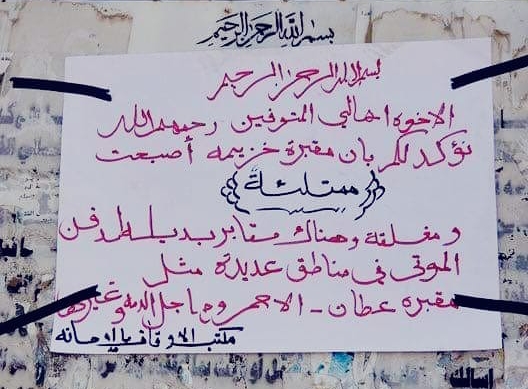 بسم الله الرحمن الرحيم
بسم الله الرحمن الرحيم
الاخوه اهالي المتوفين رحمهم الله
نؤكد لكم بان مقبرة خزيمه أصبحت
((ممتلئة))
ومغلقة وهناك مقابر بديله لدفن
الموتى في مناطق عديدة مثل
مقبرة عطان - الاحمر وماجل الدمه وغيرها
مكتب الاوقاف بالامانه